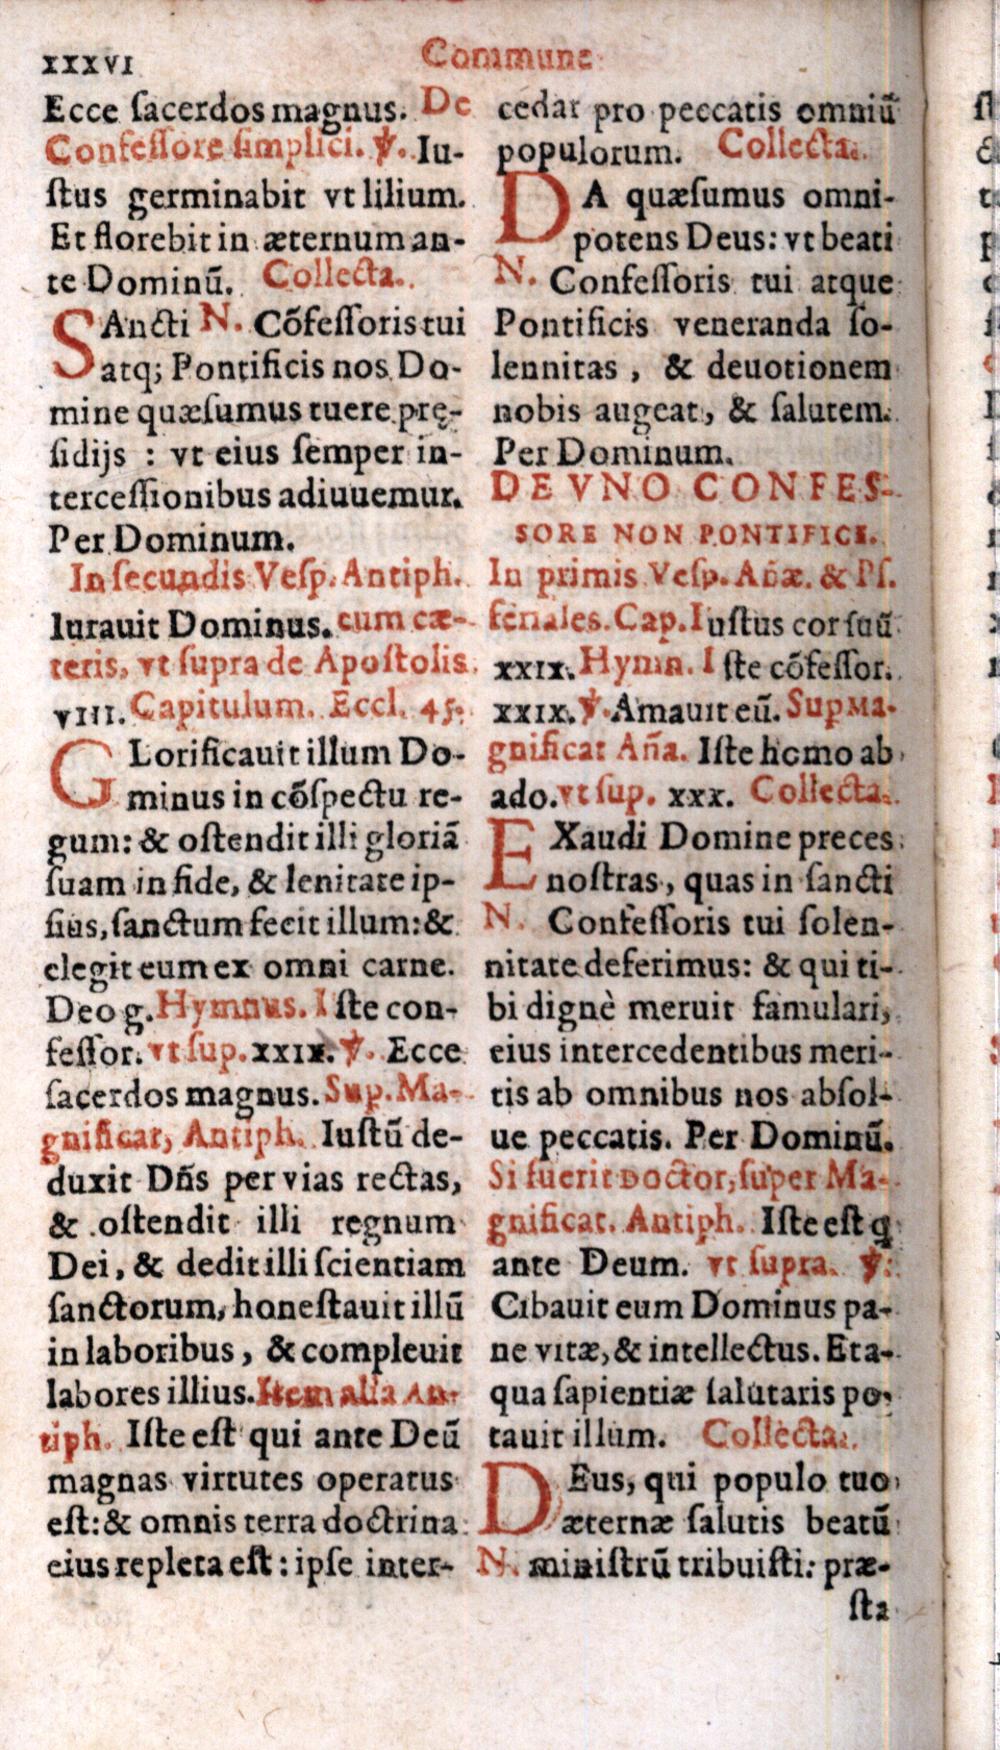 xxxvi
Commune
Ecce ſacerdos magnus. De
Confeſſore ſimplici. ℣. Iu-
ſtus germinabit vt lilium.
Et florebit in æternum an-
te Dominū. Collecta.
SAncti N. Cōfeſſoris tui
atq; Pontificis nos Do-
mine quæſumus tuere prę-
ſidijs : vt eius ſemper in-
terceſſionibus adiuuemur.
Per Dominum.
In ſecundis Veſp. Antiph.
Iurauit Dominus. cum cæ-
teris, vt ſupra de Apoſtolis.
viii. Capitulum. Eccl. 45.
GLorificauit illum Do-
minus in cōſpectu re-
gum: & oſtendit illi gloriā
ſuam in fide, & lenitate ip-
ſius, ſanctum fecit illum: &
elegit eum ex omni carne.
Deo g. Hymnus. Iſte con-
feſſor. vt ſup. xxix. ℣. Ecce
ſacerdos magnus. Sup. Ma-
gnificat, Antiph. Iuſtū de-
duxit Dñs per vias rectas,
& oſtendit illi regnum
Dei, & dedit illi ſcientiam
ſanctorum, honeſtauit illū
in laboribus, & compleuit
labores illius. Item alia An-
tiph. Iſte eſt qui ante Deū
magnas virtutes operatus
eſt: & omnis terra doctrina
eius repleta eſt : ipſe inter-
cedat pro peccatis omniū
populorum. Collecta.
DA quæſumus omni-
potens Deus: vt beati
N. Confeſſoris tui atque
Pontificis veneranda ſo-
lennitas, & deuotionem
nobis augeat, & ſalutem.
Per Dominum.
DE VNO CONFES-
SORE NON PONTIFICE.
In primis Veſp. Añæ. & Pſ.
feriales. Cap. Iuſtus cor ſuū
xxix. Hymn. Iſte cōfeſſor.
xxix. ℣. Amauit eū. Sup Ma-
gnificat Aña. Iſte homo ab
ado. vt ſup. xxx. Collecta.
EXaudi Domine preces
noſtras, quas in ſancti
N. Confeſſoris tui ſolen-
nitate deferimus: & qui ti-
bi dignè meruit famulari,
eius intercedentibus meri-
tis ab omnibus nos abſol-
ue peccatis. Per Dominū.
Si fuerit Doctor, ſuper Ma-
gnificat. Antiph. Iſte eſt q
ante Deum. vt ſupra. ℣.
Cibauit eum Dominus pa-
ne vitæ, & intellectus. Et a-
qua ſapientiæ ſalutaris po-
tauit illum. Collecta.
DEus, qui populo tuo
æternæ ſalutis beatū
N. miniſtrū tribuiſti: præ-
ſta